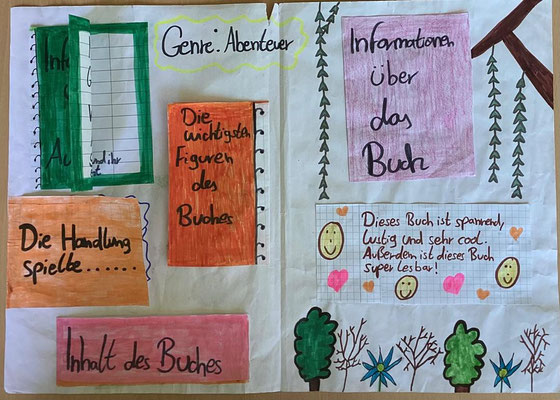 Genre: Abenteuer
Die
wichtigsten
Figuren
des
Buches
Die Handlung
spielte......
Inhalt des Buches
Informationen
über
das
Buch
Dieses Buch ist spannend,
lustig und sehr cool.
Außerdem ist dieses Buch
super lesbar!